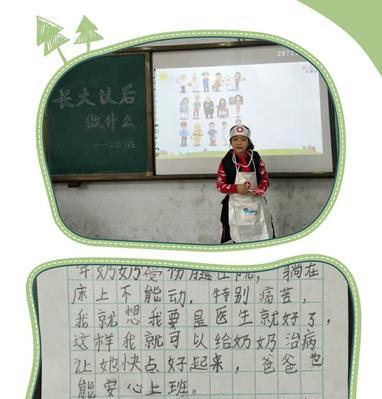 长大以后
做什么
班
年奶奶伤腿住院，躺在
床上不能动，特别痛苦，
我就想我要是医生就好了，
这样我就可以给奶奶治病
让她快点好起来，爸爸也
能安心上班。